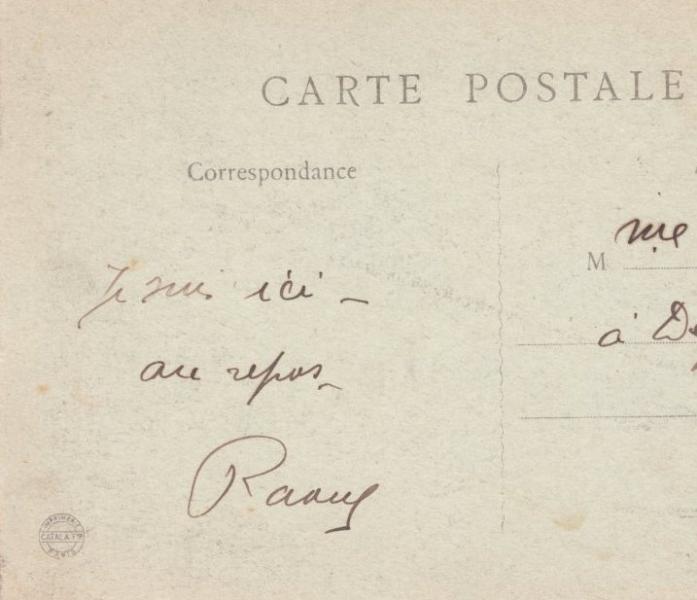 CARTE POSTALE
Correspondance
Je suis ici -
au repos -
M
à
IMPRIMERIE
CATALA Frs
PARIS